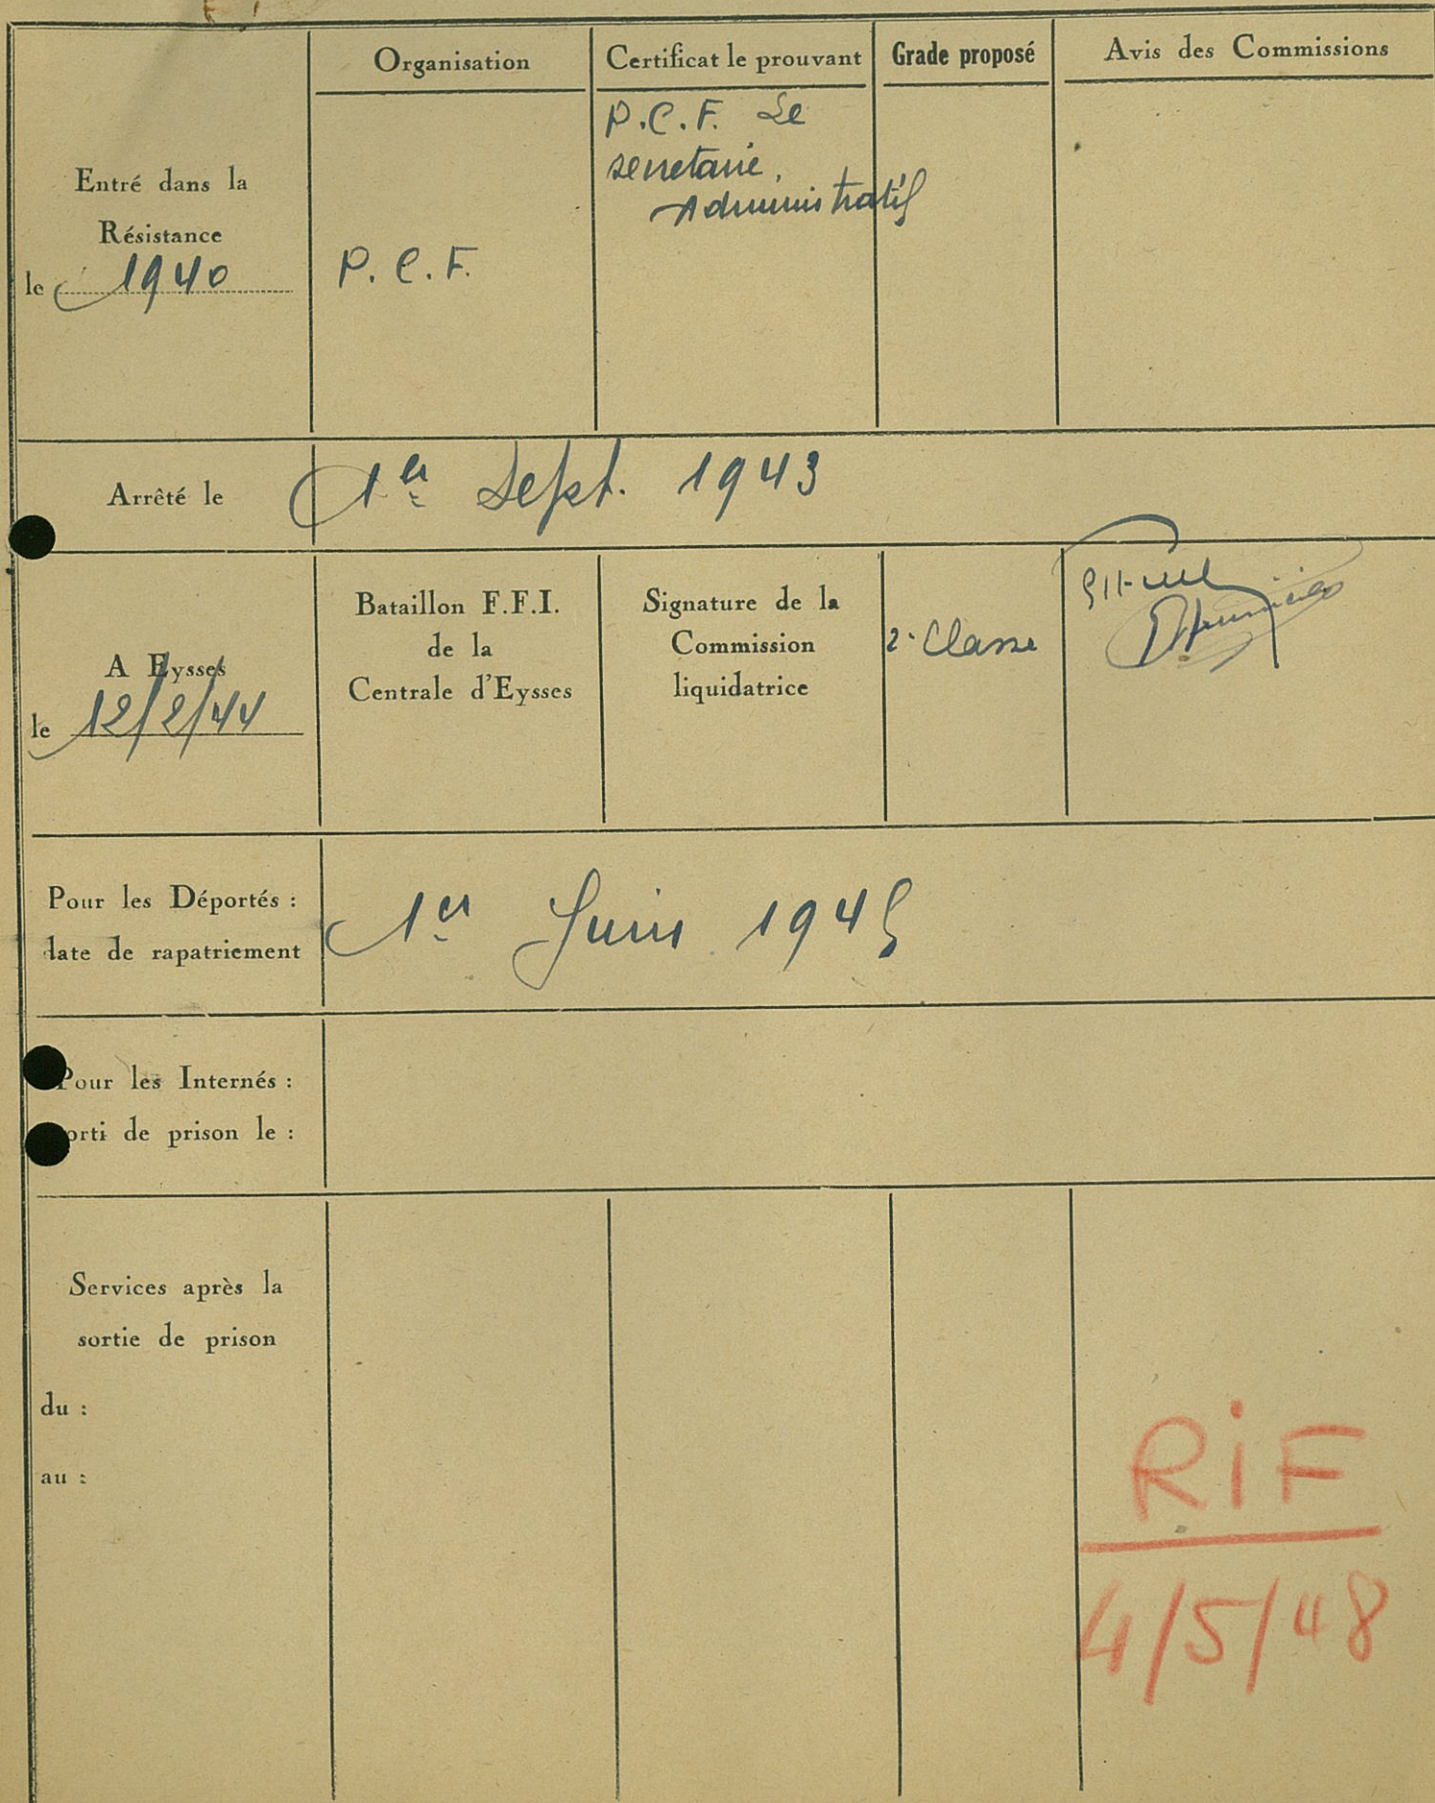 Organisation
Certificat le prouvant
Grade proposé
Avis des Commissions
Entré dans la
Résistance
le 1940
P.C.F.
P.C.F. Le
secretaire.
Administratif
Arrêté le
1er Sept. 1943
A Eysses
le 12/2/44
Bataillon F.F.I.
de la
Centrale d'Eysses
Signature de la
Commission
liquidatrice
2e Classe
Pour les Déportés :
date de rapatriement
1er Juin 1945
Pour les Internés :
orti de prison le :
Services après la
sortie de prison
du :
au :
RiF
4/5/48